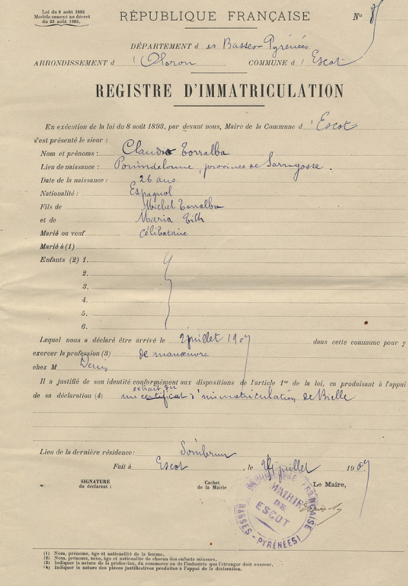 Loi du 8 août 1893
Modèle annexé au décret
RÉPUBLIQUE FRANÇAISE
N° 8
DÉPARTEMENT des Basses-Pyrénées
ARRONDISSEMENT d'Oloron COMMUNE d'Escot
REGISTRE D'IMMATRICULATION
En exécution de la loi du 8 août 1893, par devant nous, Maire de la Commune d'Escot
s'est présenté le sieur :
Nom et prénoms : Claudio Torralba
Lieu de naissance : province de Sarragosse.
Date de la naissance : 26 ans
Nationalité : Espagnol
Fils de Michel Torralba
et de Maria
Marié ou veuf célibataire
Marié à (1)
Enfants (2) 1.
2.
3.
4.
5.
6.
Lequel nous a déclaré être arrivé le 2 juillet 1907 dans cette commune pour y
exercer la profession (3) de manœuvre
chez M
Il a justifié de son identité conformément aux dispositions de l'article 1er de la loi, en produisant à l'appui
extrait du
de sa déclaration (4) d'immatriculation de Bielle
Lieu de la dernière résidence : Sombrun
Fait à Escot, le juillet 1907
SIGNATURE
du déclarant :
Cachet
de la Mairie
Le Maire,
MAIRIE
DE
ESCOT
(BASSES-PYRÉNÉES)
(1) Nom, prénoms, âge et nationalité de la femme.
(2) Nom, prénoms, sexe, âge et nationalité de chacun des enfants mineurs.
(3) Indiquer la nature de la profession, du commerce ou de l'industrie que l'étranger doit exercer.
(4) Indiquer la nature des pièces justificatives produites à l'appui de la déclaration.